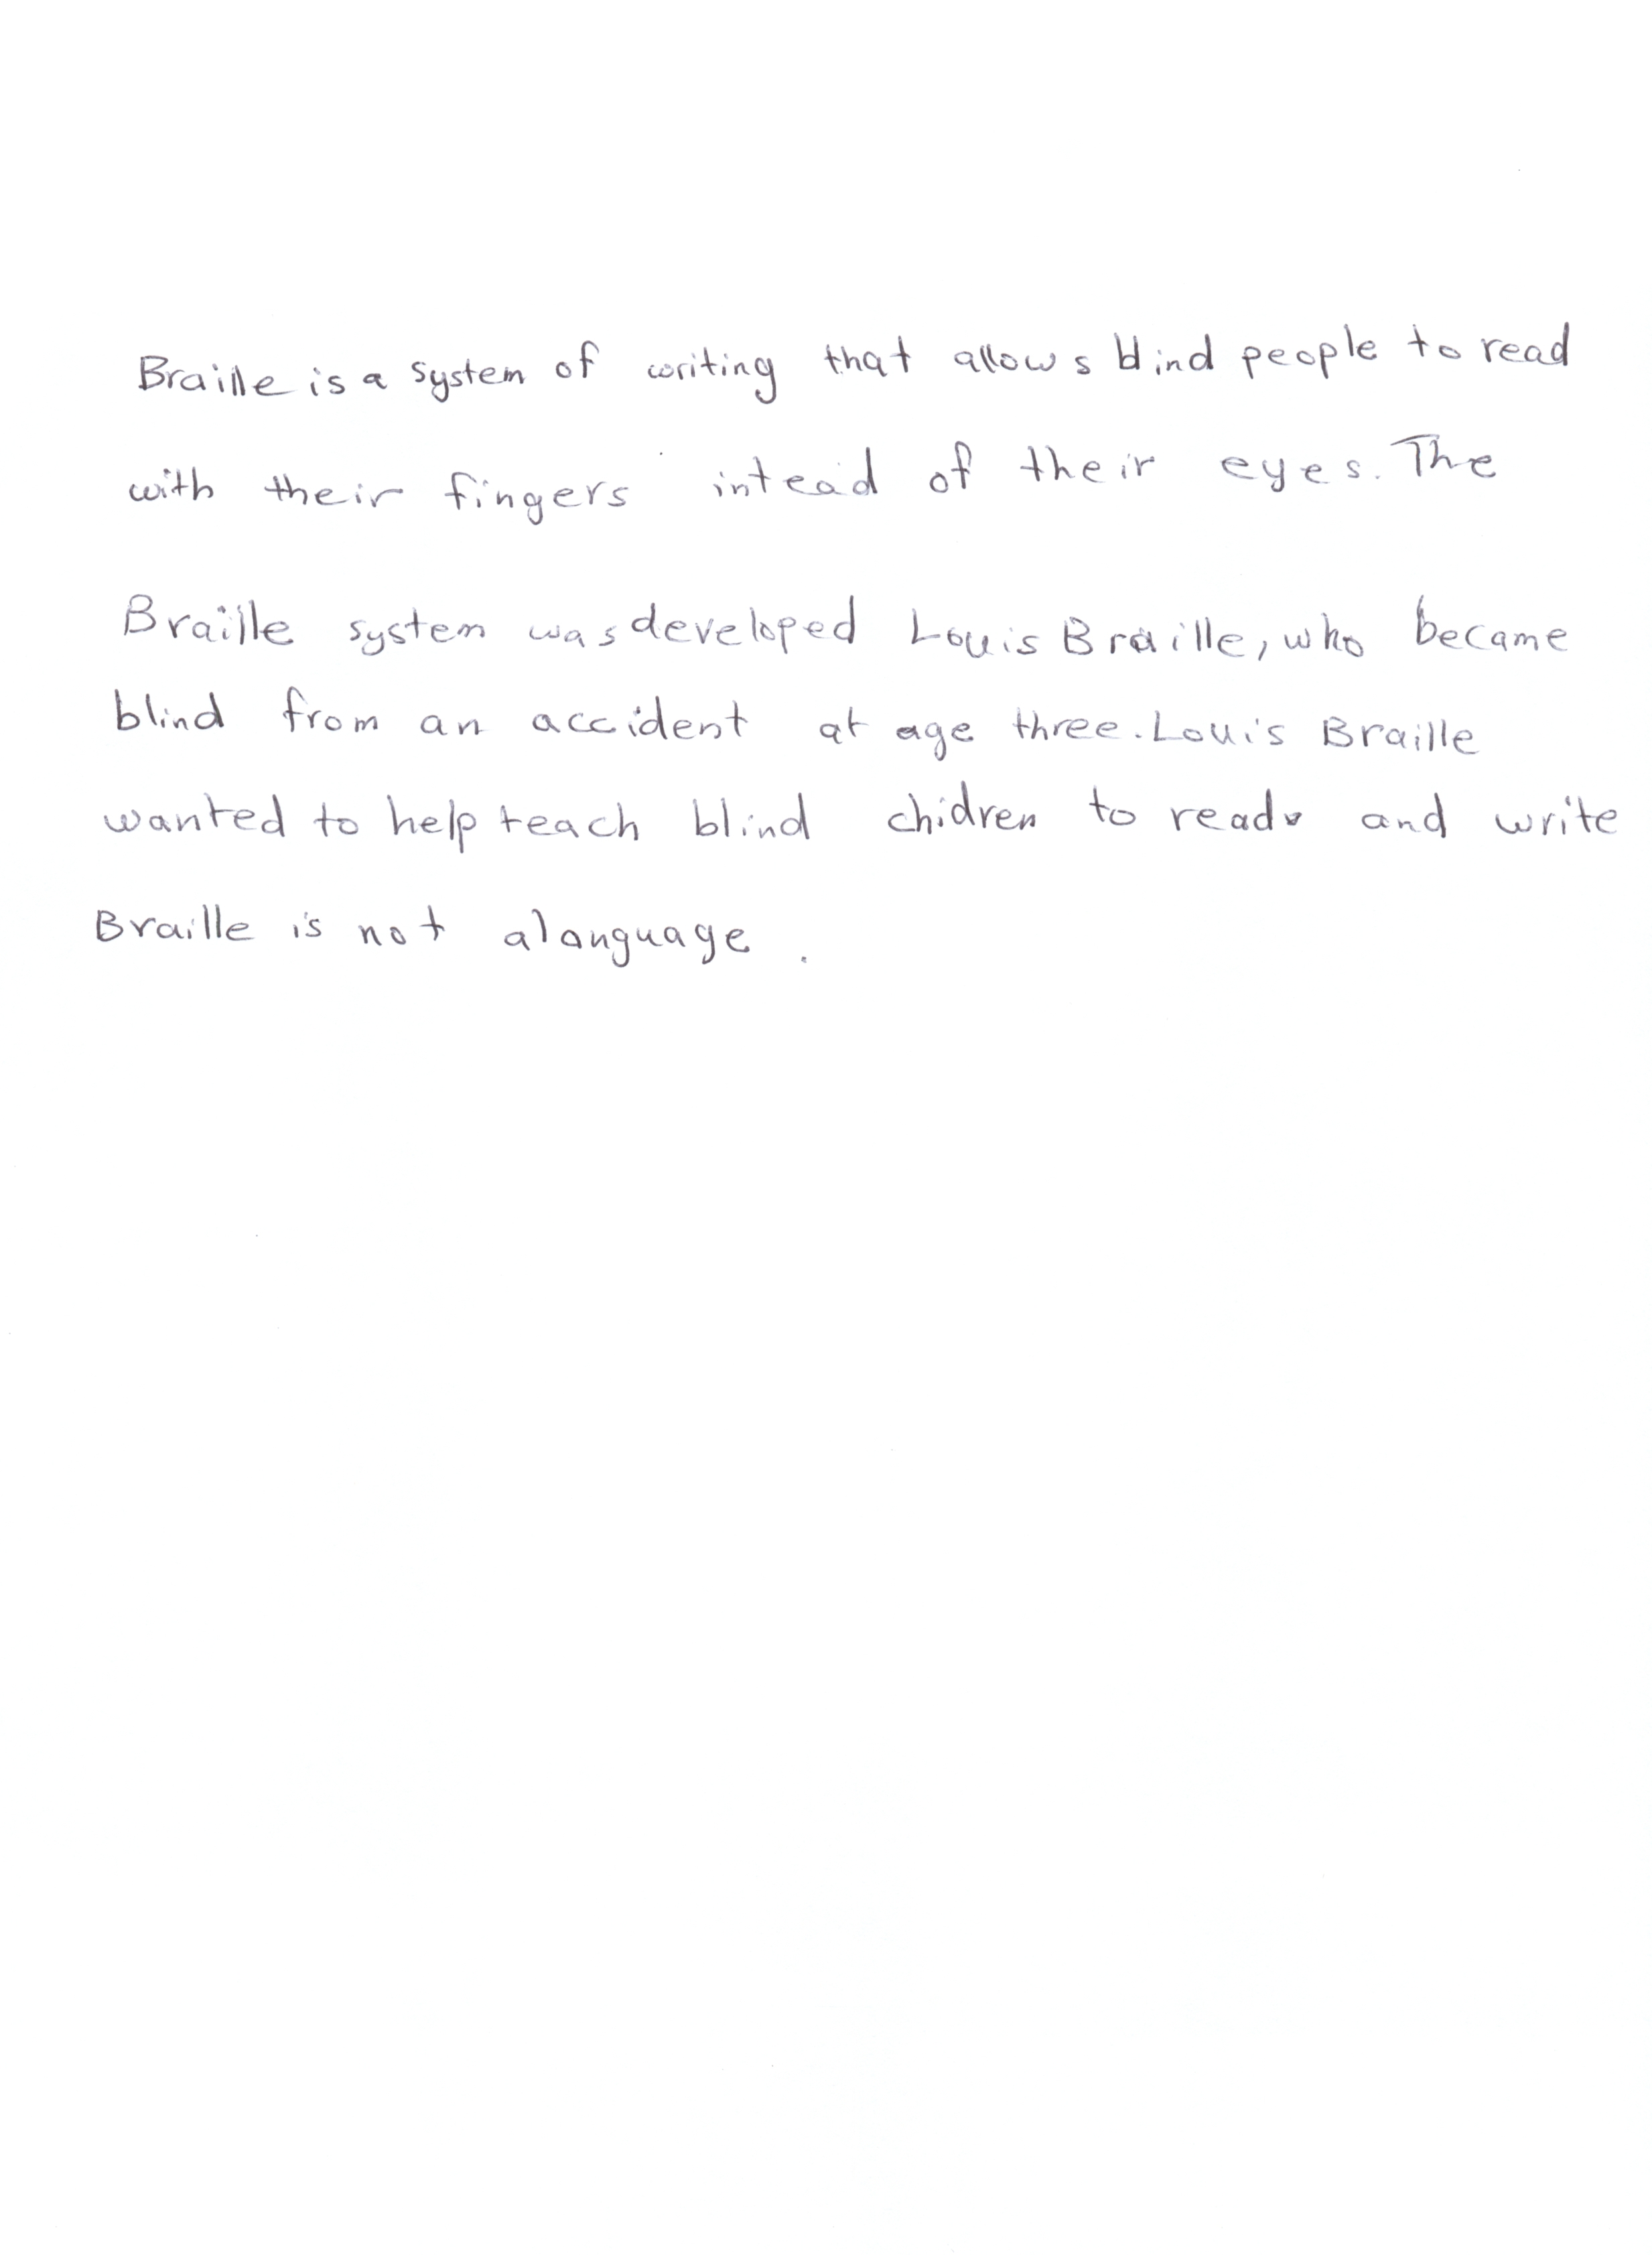 Braille is a system of writing that allows blind people to read
with their fingers intead of their eyes. The
Braille system was developed Louis Braille, who became
blind from an accident at age three. Louis Braille
wanted to help teach blind chidren to read and write
Braille is not a language.